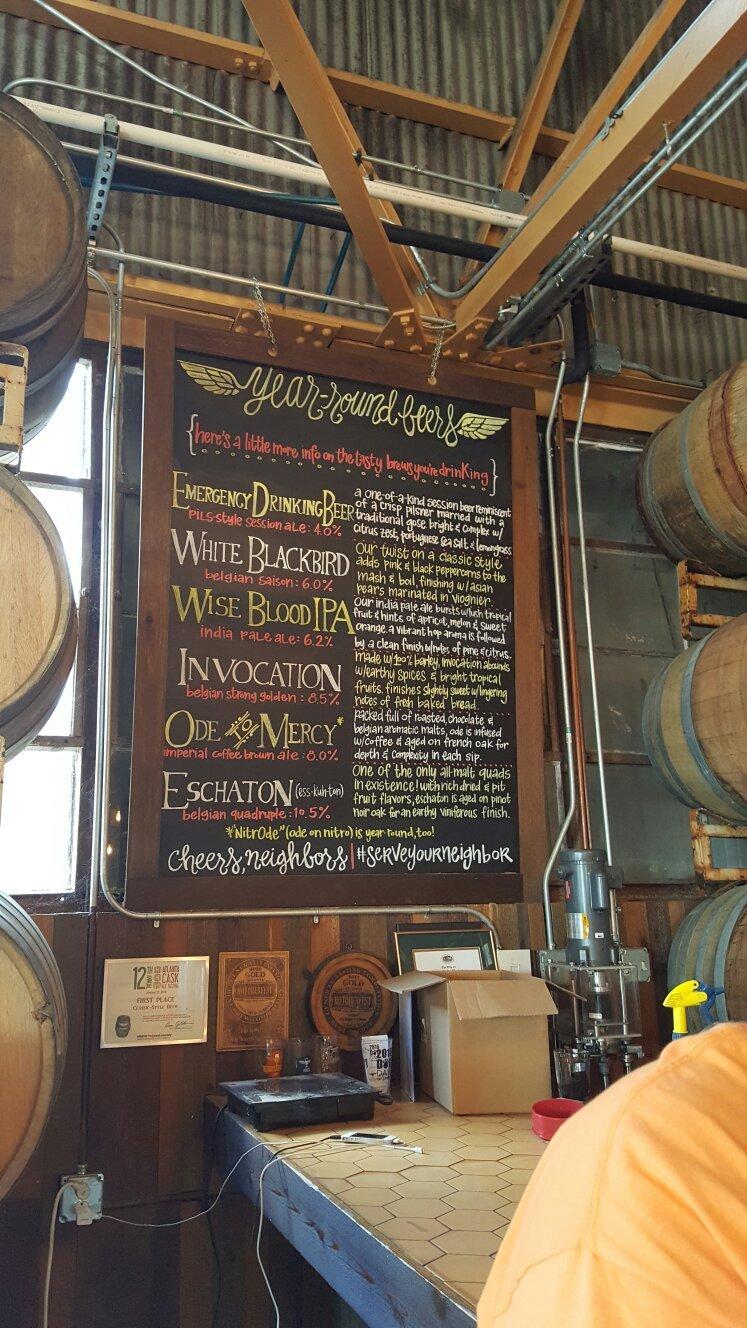 year-round beers
{here's a little more info on the tasty brews you're drinking}
Emergency Drinking Beer
Pils-style session ale: 4.0%
a one-of-a-kind session beer reminiscent
of a crisp pilsner married with a
traditional gose bright & complex w/
citrus zest, portuguese sea salt & lemongrass
White Blackbird
belgian saison: 6.0%
our twist on a classic style
adds pink & black peppercorns to the
mash & boil, finishing w/asian
pears marinated in viognier.
Wise Blood IPA
india pale ale: 6.2%
our india pale ale bursts w/lush tropical
fruit & hints of apricot, melon & sweet
orange. a vibrant hop aroma is followed
by a clean finish w/notes of pine & citrus.
Invocation
belgian strong golden: 8.5%
made w/100% barley, invocation abounds
w/earthy spices & bright tropical
fruits. finishes slightly sweet w/lingering
notes of fresh baked bread.
Ode to Mercy*
imperial coffee brown ale: 8.0%
packed full of roasted, chocolate &
belgian aromatic malts, ode is infused
w/coffee & aged on french oak for
depth & complexity in each sip.
Eschaton (ess-kuh-ton)
belgian quadruple: 10.5%
one of the only all-malt quads
in existence! with rich dried & pit
fruit flavors, eschaton is aged on pinot
noir oak for an earthy viniferous finish.
*"NitrOde" (ode on nitro) is year-round, too!
cheers, neighbors | #serveyourneighbor
12
ATLANTA
CASK
FIRST PLACE
Classic-Style Beer
GOLD
GOLD